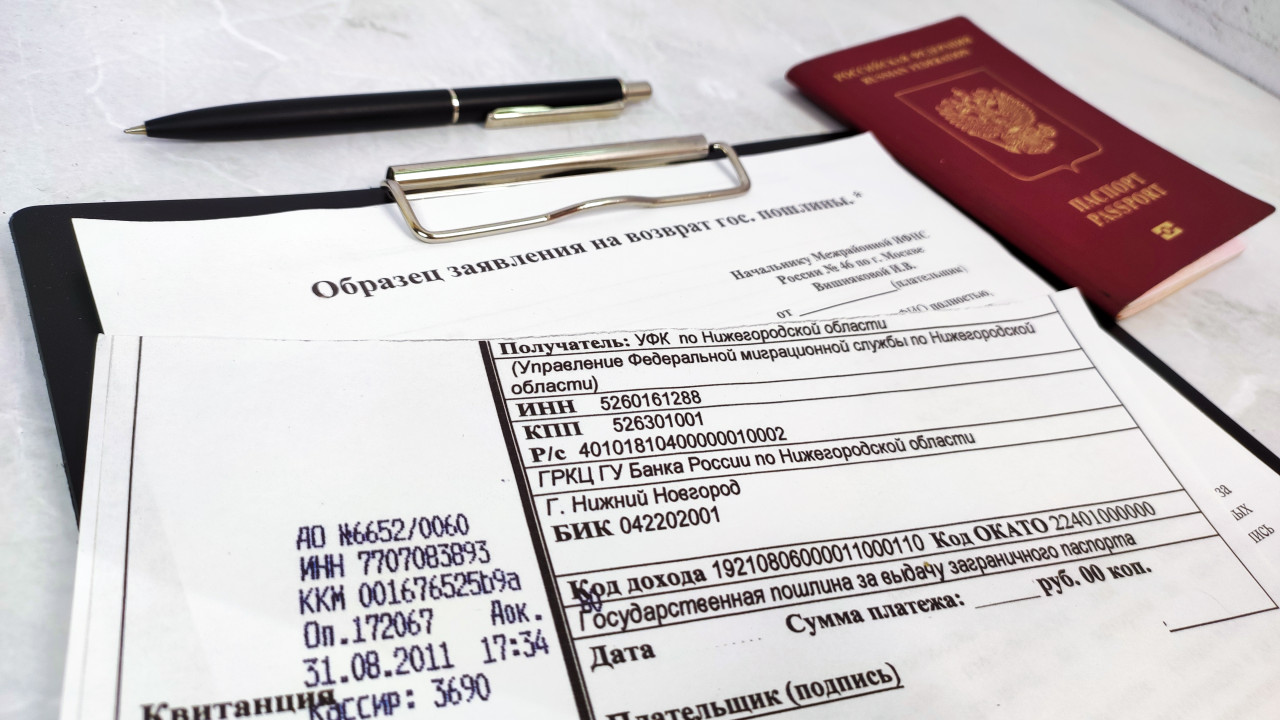 РОССИЙСКАЯ ФЕДЕРАЦИЯ
RUSSIAN FEDERATION
ПАСПОРТ
PASSPORT
Образец заявления на возврат гос. пошлины.*
Начальнику Межрайонной ИФНС
России № 46 по г. Москве
Вишняковой И.В.
от ________(плательщик)
полностью,
Получатель: УФК по Нижегородской области
(Управление Федеральной миграционной службы по Нижегородской
области)
ИНН 5260161288
КПП 526301001
Р/с 40101810400000010002
ГРКЦ ГУ Банка России по Нижегородской области
Г. Нижний Новгород
БИК 042202001
Код дохода 19210806000011000110 Код ОКАТО 22401000000
Государственная пошлина за выдачу заграничного паспорта
Сумма платежа: _____ руб. 00 коп.
Дата
Плательщик (подпись)
АО №6652/0060
ИНН 7707083893
ККМ 001676525b9a
Оп.172067 Док.
31.08.2011 17:34
Кассир: 3690
Квитанция
за
ых
пись